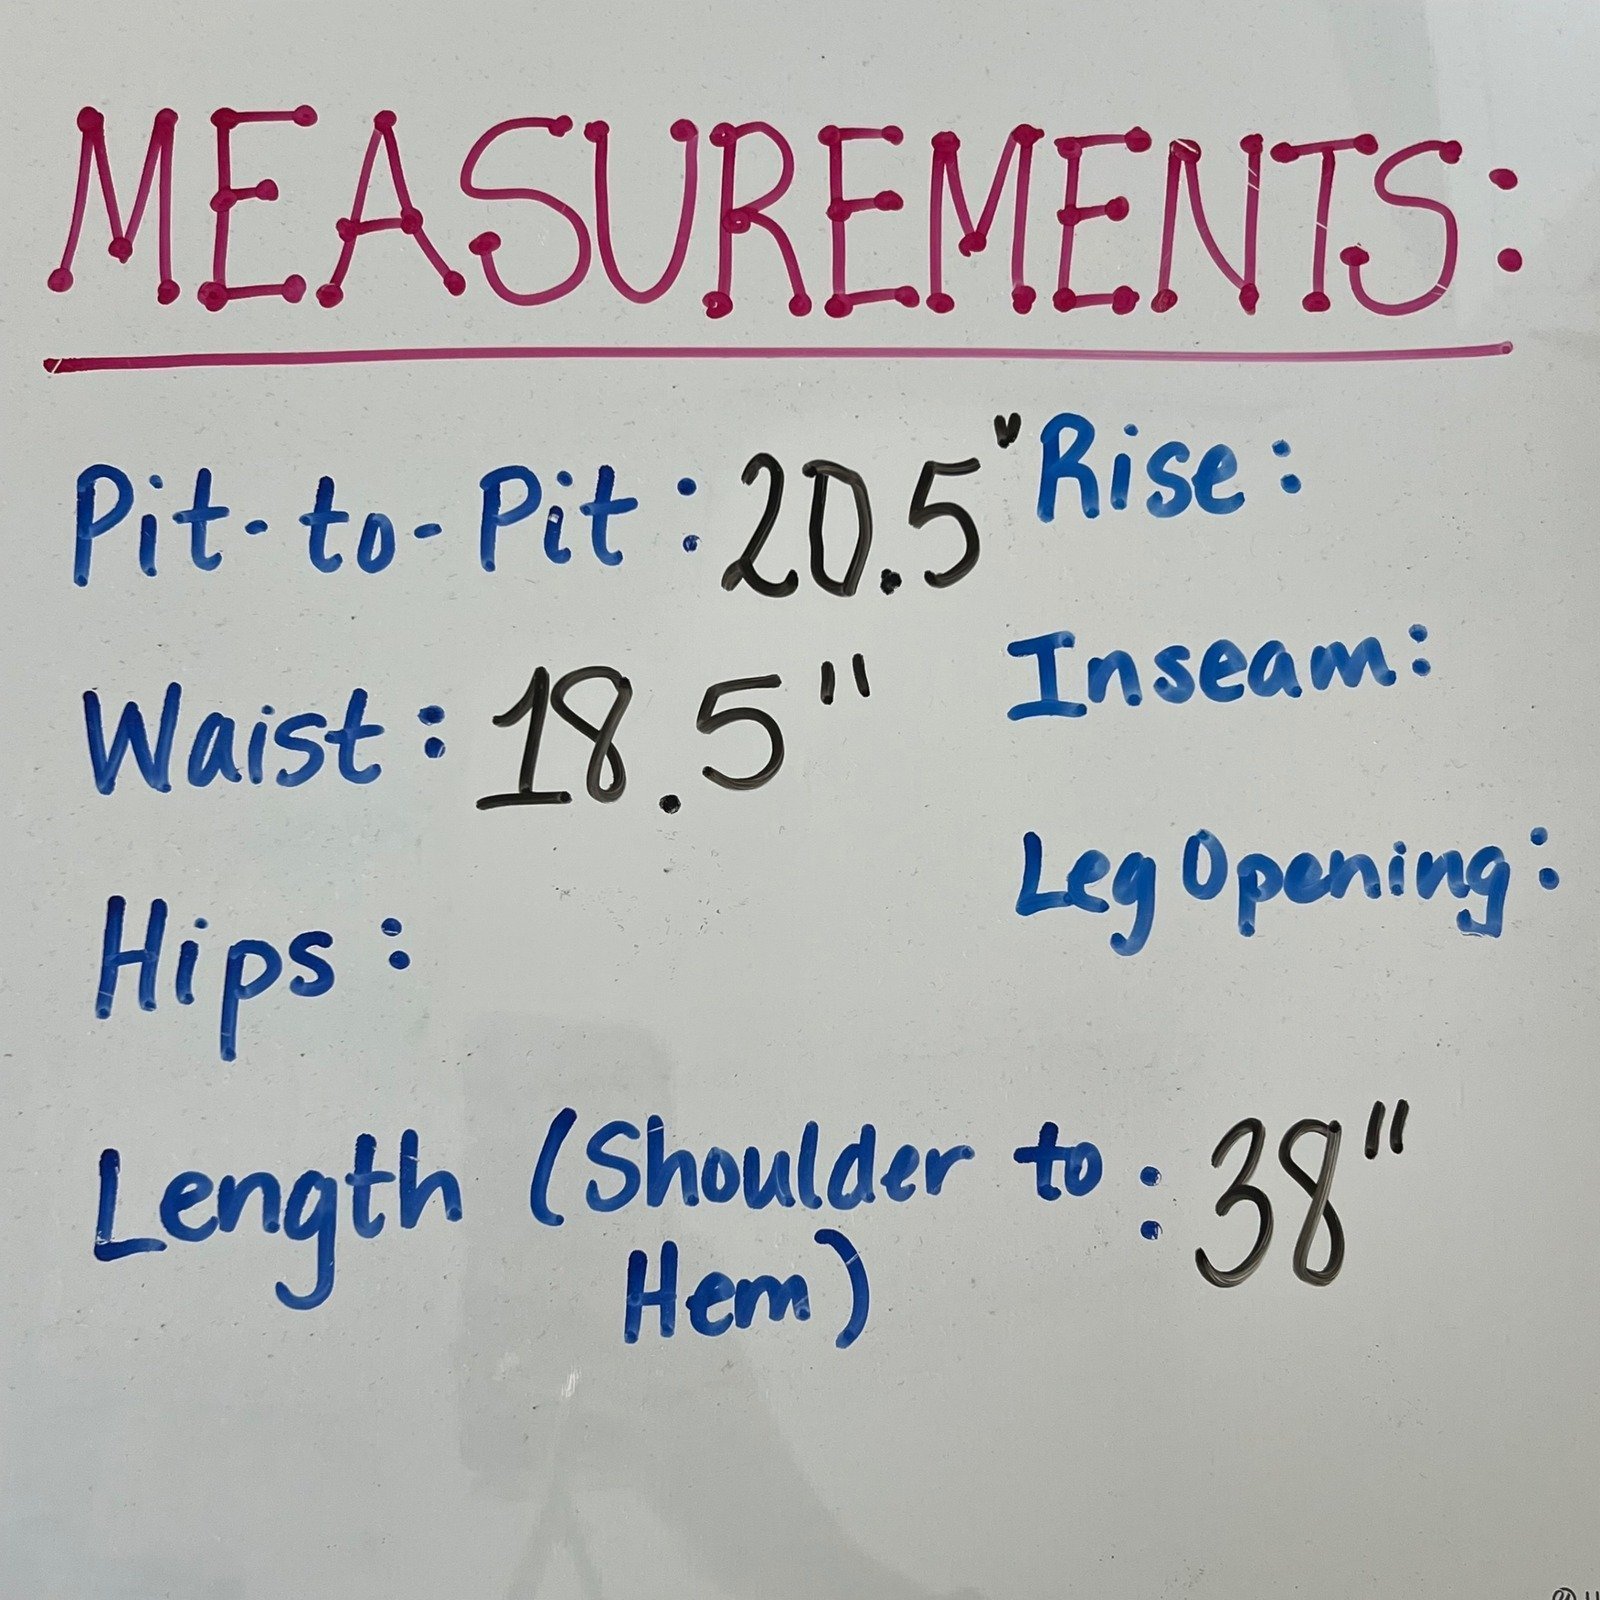 MEASUREMENTS:
Pit-to-Pit: 20.5"
Rise:
Waist: 18.5"
Inseam:
Hips:
Leg Opening:
Length (Shoulder to : 38"
Hem)